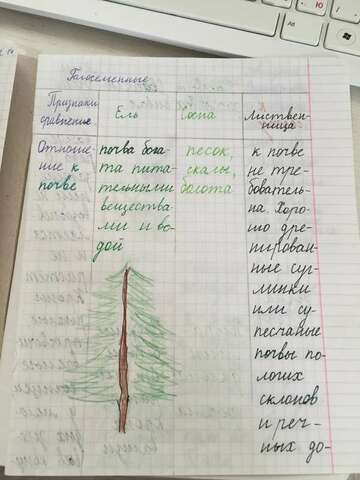 Голосеменные
Признаки
сравнение
Ель
Сосна
Листвен-
ница
Отноше-
ние к
почве
почва бога-
та пита-
тельными
вещества-
ми и во-
дой
песок,
скалы,
болота
к почве
не тре-
бователь-
на. Хоро-
шо дре-
нирован-
ные суг-
линки
или су-
песчаные
почвы по-
логих
склонов
и реч-
ных до-